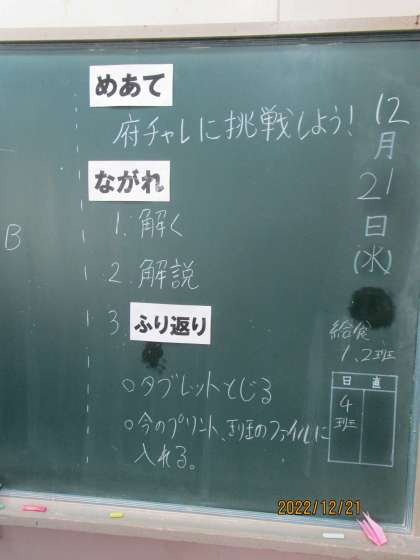 めあて
府チャレに挑戦しよう!
ながれ
1. 解く
2. 解説
3 ふり返り
○タブレットとじる
○今のプリント、理のファイルに
入れる。
12月21日(水)
給食
1、2班
日直
4班
B
2022/12/21